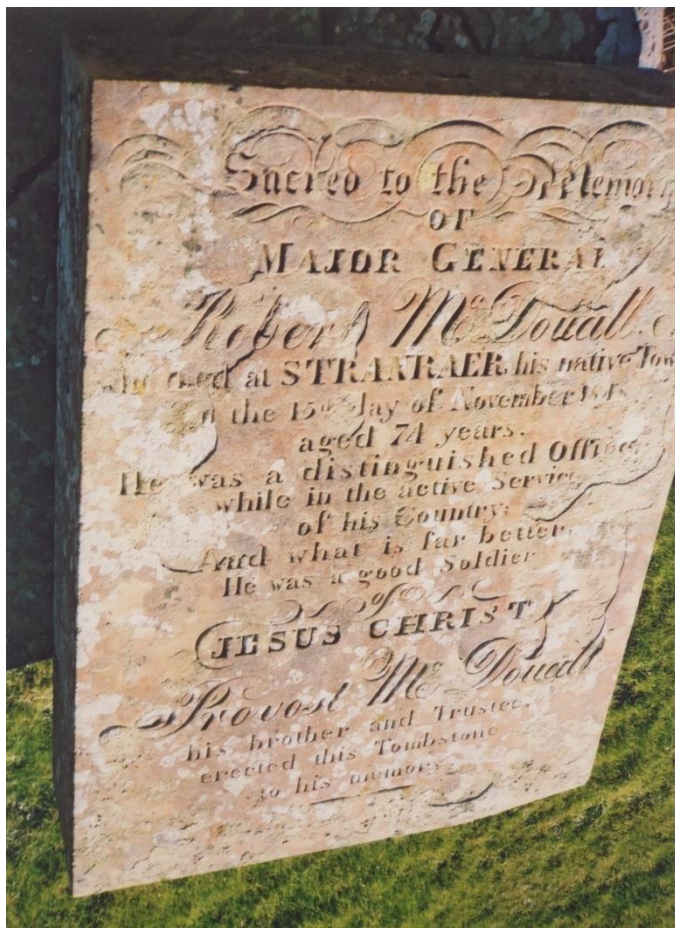 Sacred to the Memory
OF
MAJOR GENERAL
Robert Mc Douall.
who died at STRANRAER, his native Tow
on the 15th day of November 184
aged 74 years.
He was a distinguished Officer
while in the active Service
of his Country;
And what is far better,
He was a good Soldier
of
JESUS CHRIST
Provost Mc Douall
his brother and Trustee,
erected this Tombstone
to his memory.